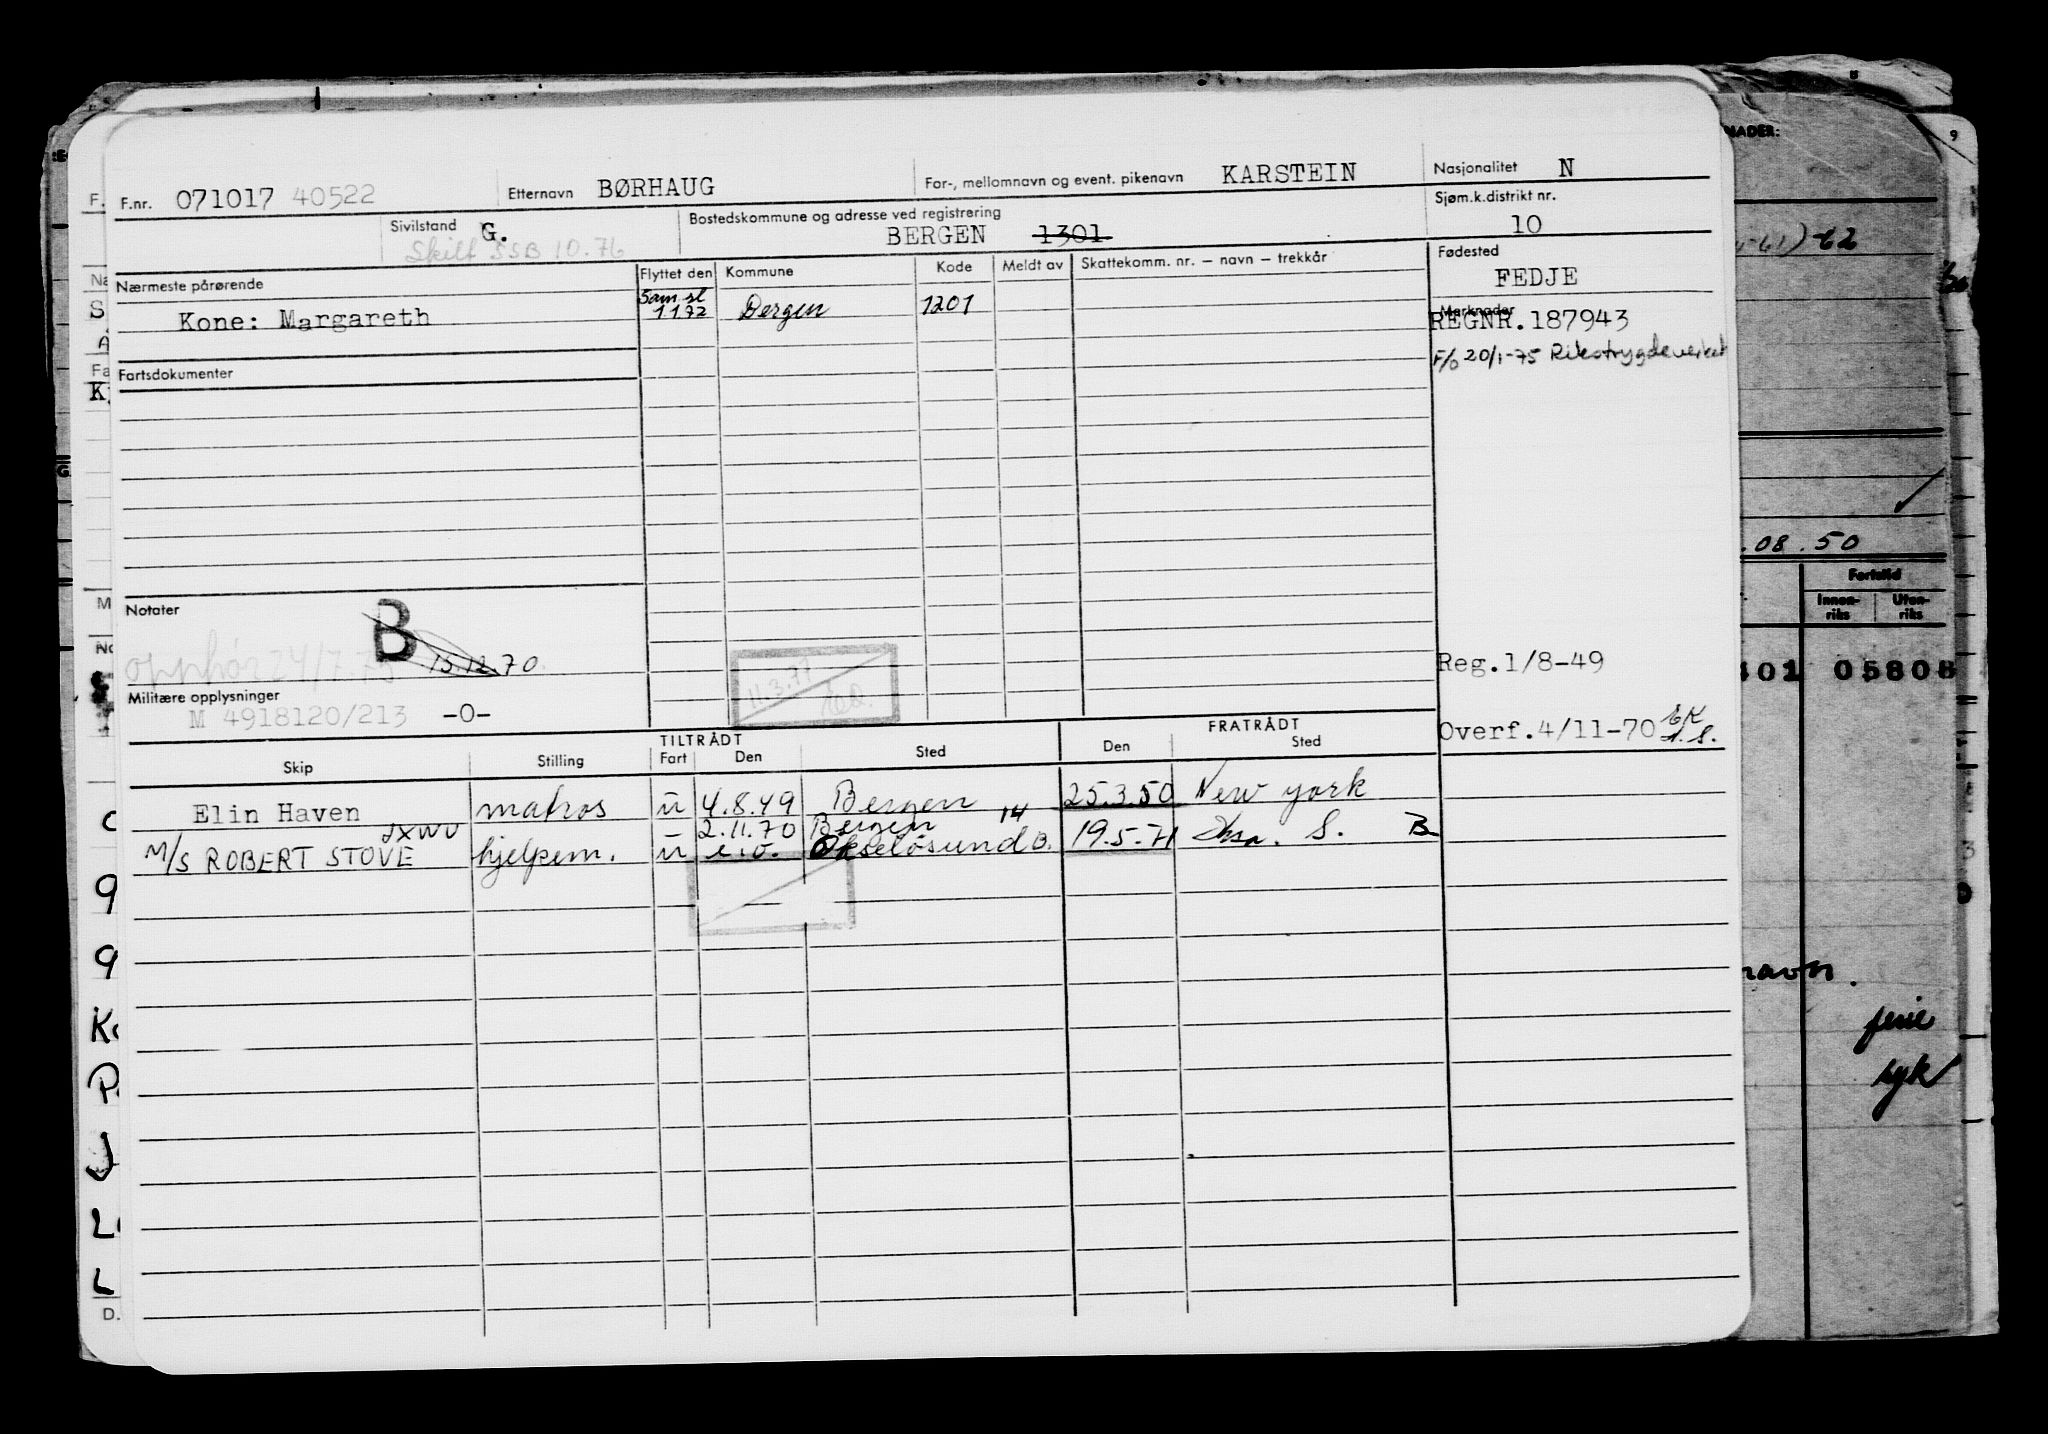 F.nr. 071017 40522 Etternavn BØRHAUG For-, mellomnavn og event. pikenavn KARSTEIN Nasjonalitet N
Sivilstand G. Bostedskommune og adresse ved registrering BERGEN 1301 Sjøm.k.distrikt nr. 10
Skilt SSB 10.76
Nærmeste pårørende Flyttet den Kommune Kode Meldt av Skattekomm. nr. — navn — trekkår Fødested
FEDJE
Kone: Margareth 1172 Bergen 1201
Merknader
REGNR.187943
F/o 20/1-75 Rikstrygdeverket
Fartsdokumenter
Notater B 15.12.70
opphør 24/7.73
11.3.77
Reg.1/8-49
Militære opplysninger
M 4918120/213 -0-
Overf.4/11-70
TILTRÅDT FRATRÅDT
Skip Stilling Fart Den Sted Den Sted
Elin Haven matros u 4.8.49 Bergen 25.3.50 New york
JXWU 2.11.70 Bergen 14
M/S ROBERT STOVE hjelpem. u Okseløsund B. 19.5.71 S. B
NADER:
9
62
.08.50
Fartstid
Innen-
riks
Uten-
riks
401 05808
navn.
ferie
syk